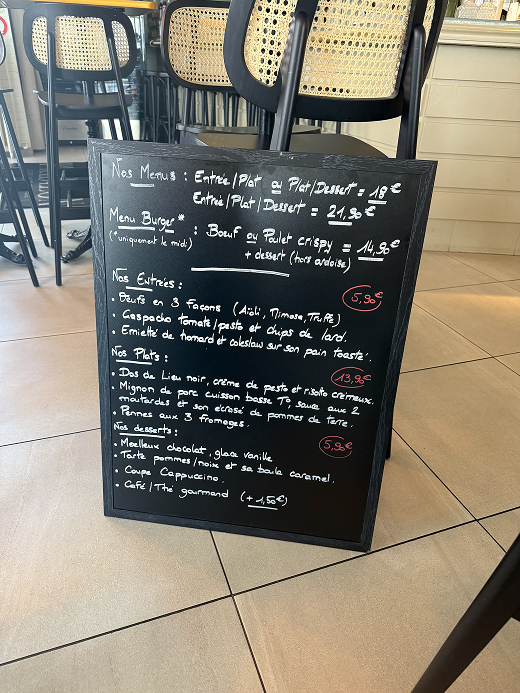 Nos Menus : Entrée/Plat ou Plat/Dessert = 18€
Entrée/Plat/Dessert = 21,90€
Menu Burger* : Boeuf ou Poulet crispy = 14,90€
(*uniquement le midi) + dessert (hors ardoise)
Nos Entrées : 5,90€
• Oeufs en 3 façons (Aïoli, Mimosa, Truffe)
• Gaspacho tomate/pesto et chips de lard.
• Emietté de homard et coleslaw sur son pain toasté.
Nos Plats : 13,90€
• Dos de Lieu noir, crème de pesto et risotto crémeux.
• Mignon de porc cuisson basse T°, sauce aux 2
moutardes et son écrasé de pommes de terre.
• Pennes aux 3 fromages.
Nos desserts : 5,90€
• Moelleux chocolat, glace vanille
• Tarte pommes/noix et sa boule caramel.
• Coupe Cappuccino.
• Café/Thé gourmand (+ 1,50€)